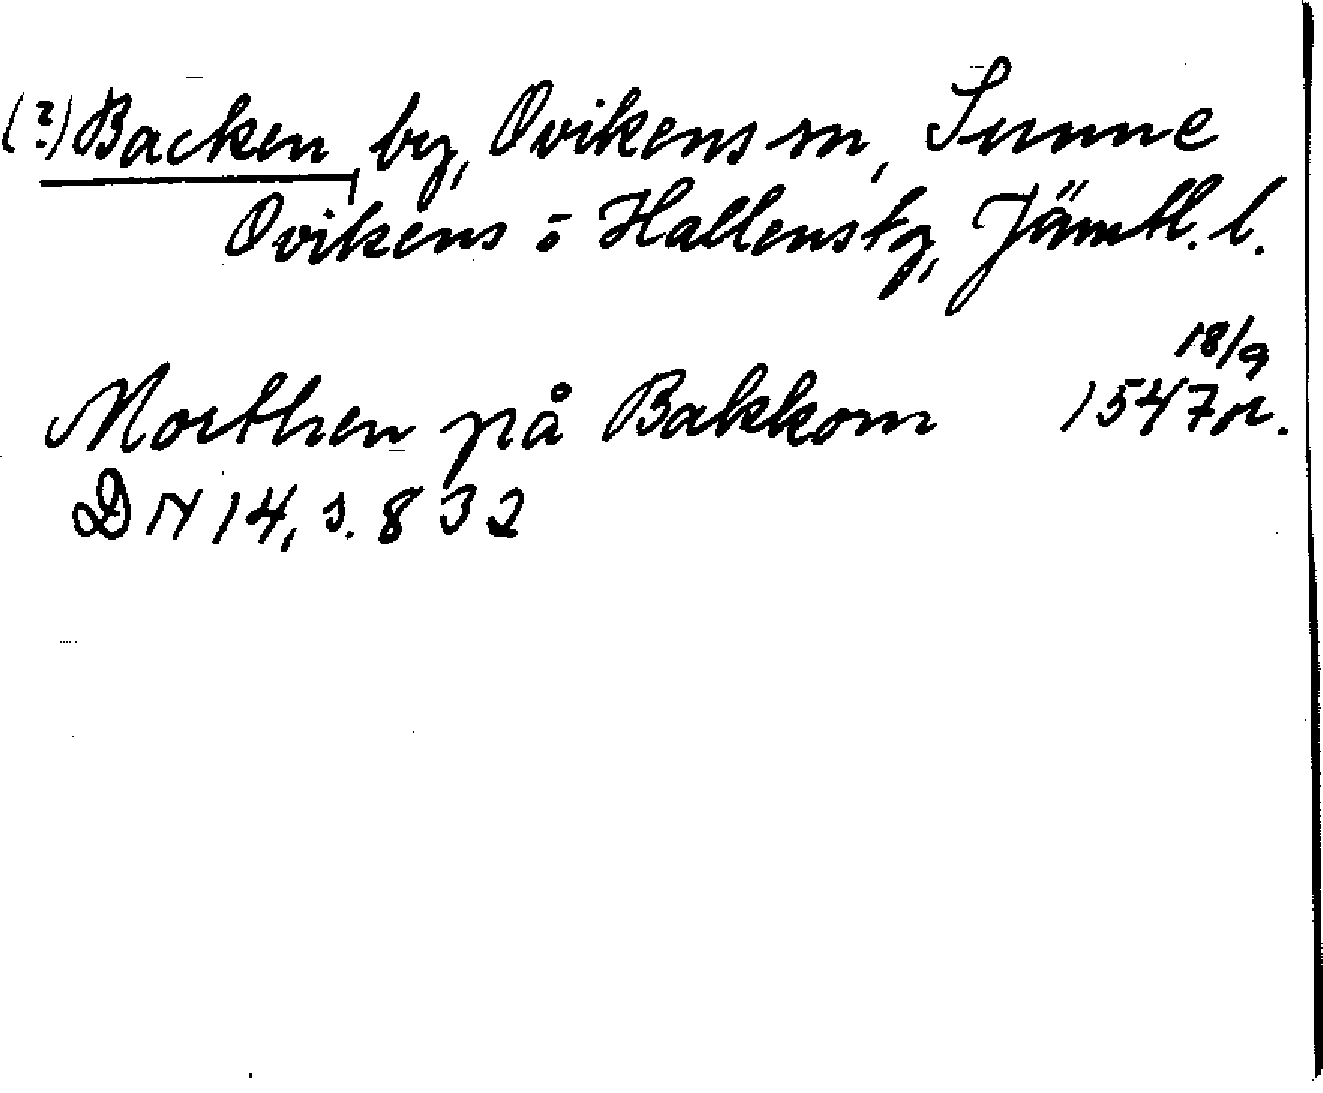 (?) Backen, by, Ovikens sn, Sunne
Ovikens o Hallens tg, Jämtl. l.
18/9
Morthen på Bakkom 1547 or.
DN 14, s. 832